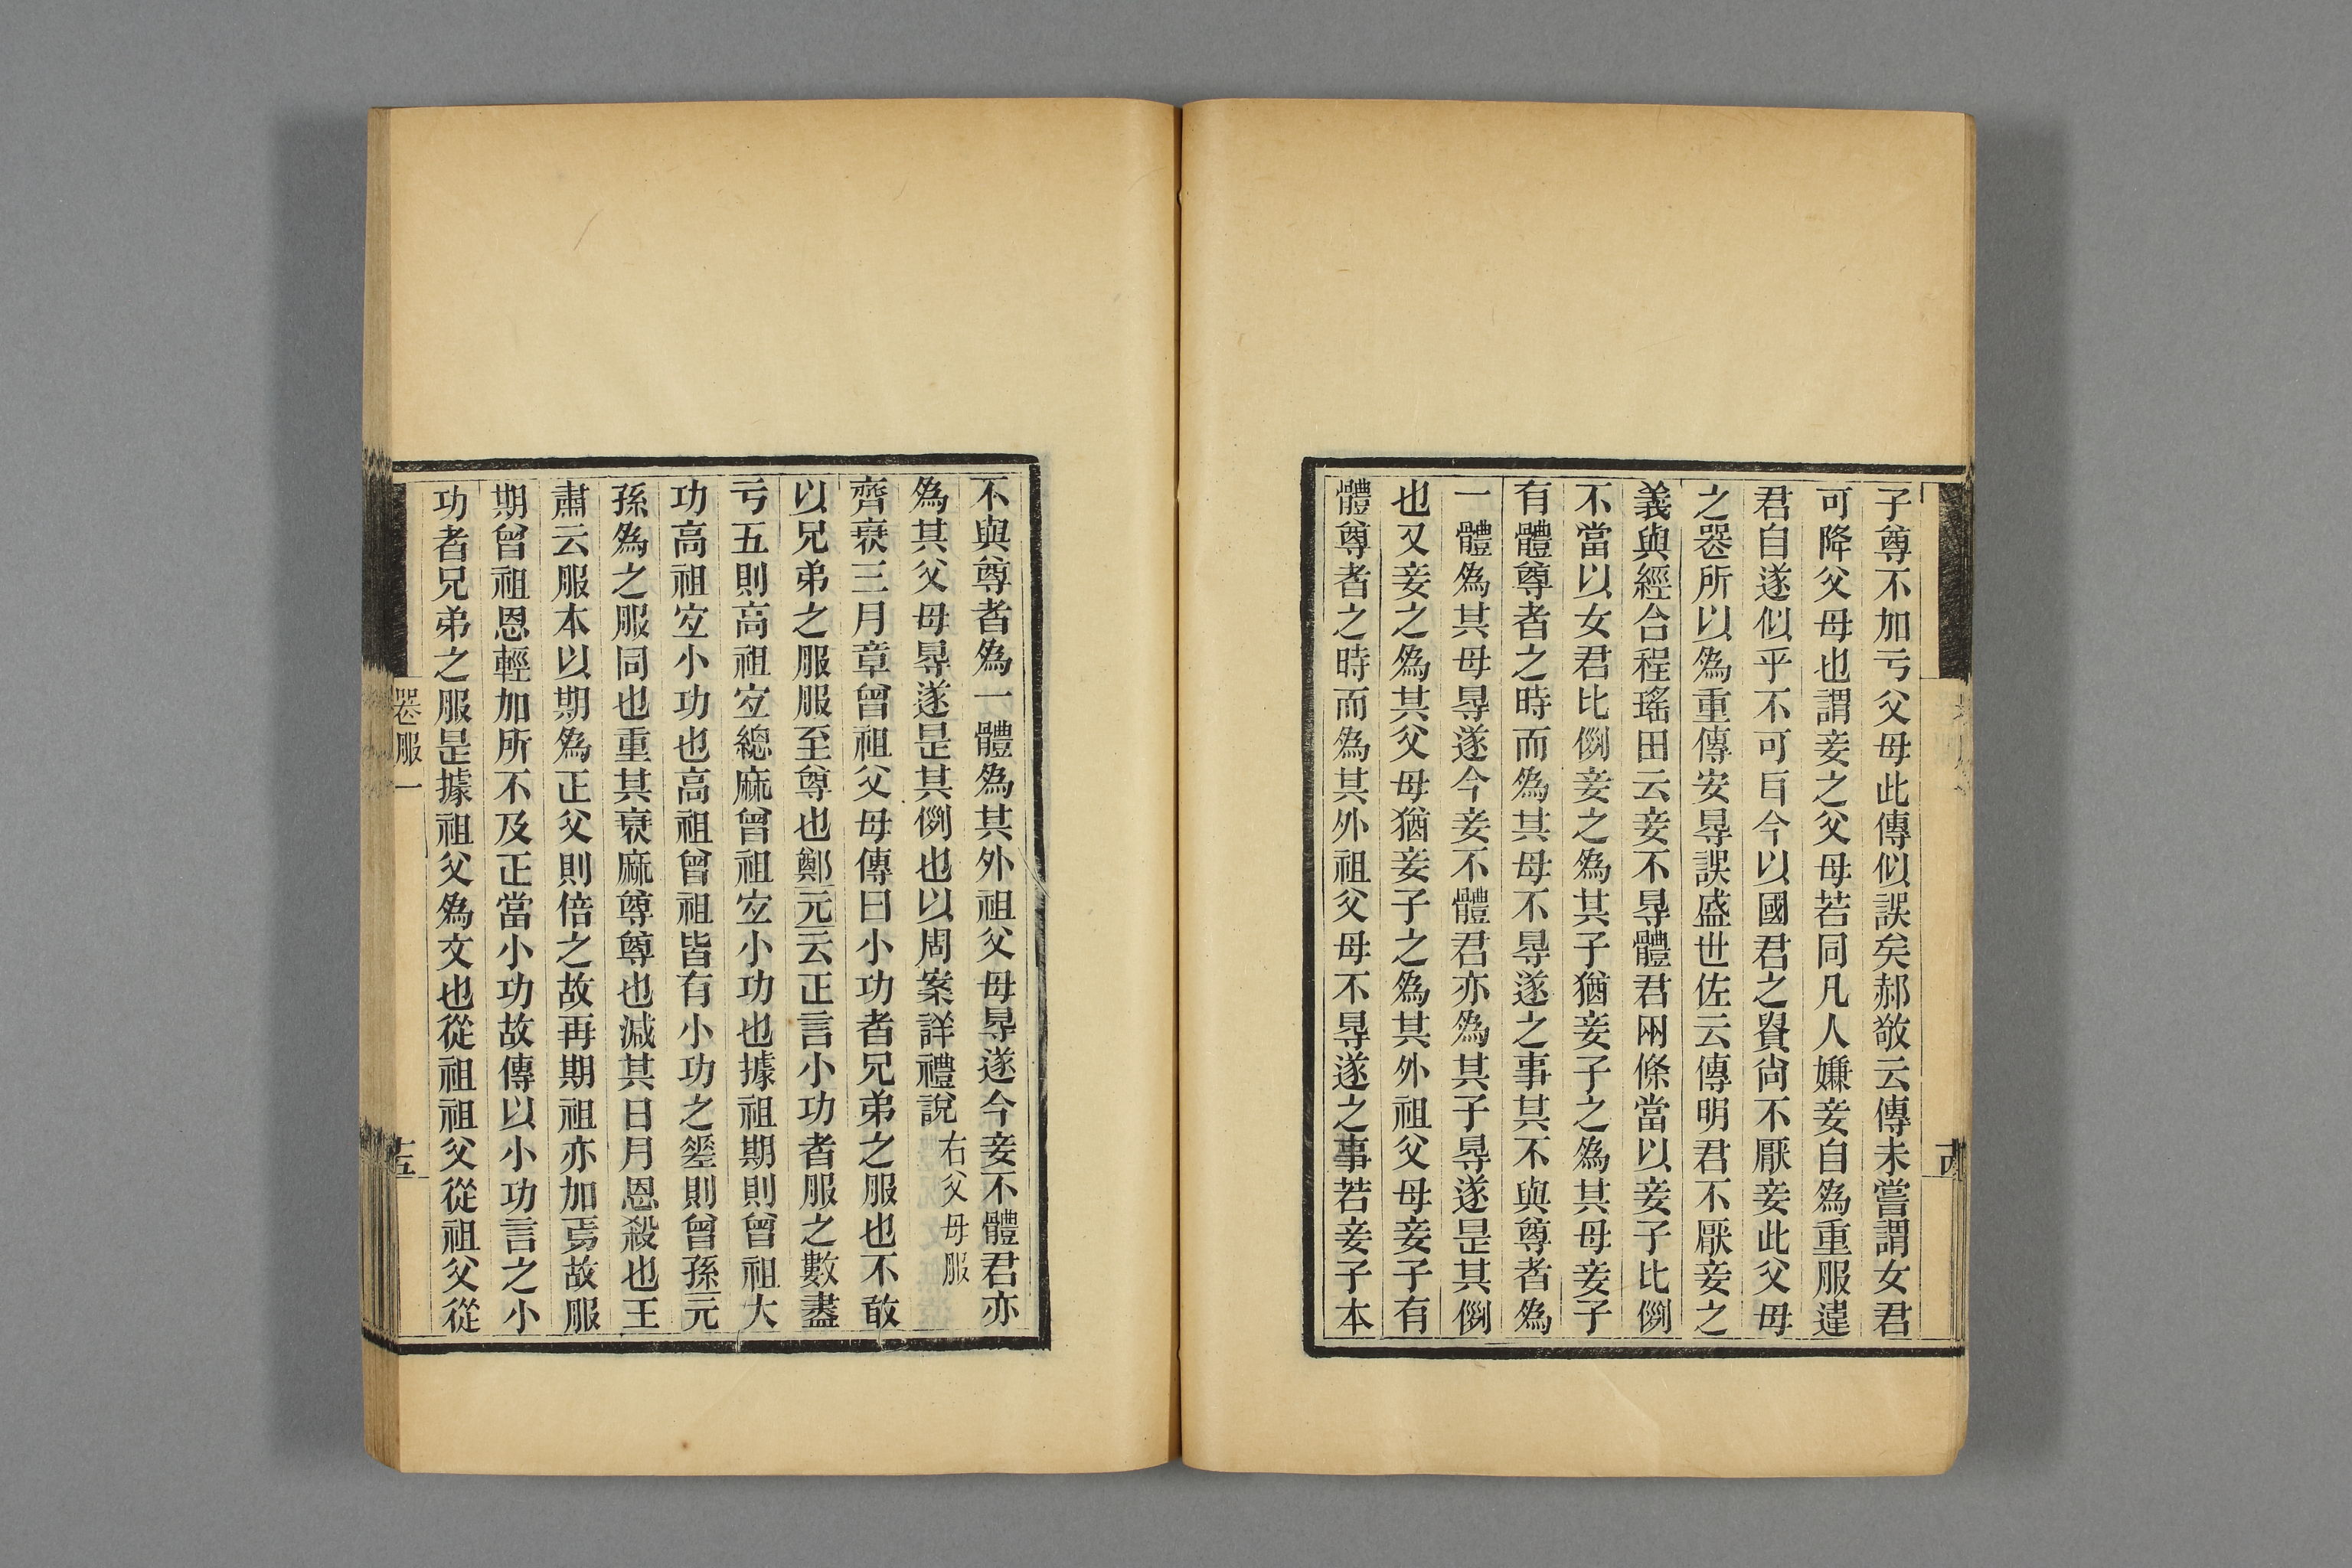 子尊不加亏父母此傳似誤矣郝敬云傳未嘗謂女君
可降父母也謂妾之父母若同凡人嫌妾自爲重服違
君自遂似乎不可𥃩今以國君之貴尙不厭妾此父母
之喪所以爲重傳安㝵誤盛世佐云傳明君不厭妾之
義與經合程瑤田云妾不㝵體君兩條當以妾子比例
不當以女君比例妾之爲其子猶妾子之爲其母妾子
有體尊者之時而爲其母不㝵遂之事其不與尊者爲
一體爲其母㝵遂今妾不體君亦爲其子㝵遂是其例
也又妾之爲其父母猶妾子之爲其外祖父母妾子有
體尊者之時而爲其外祖父母不㝵遂之事若妾子本
古
不與尊者爲一體爲其外祖父母㝵遂今妾不體君亦
爲其父母㝵遂是其例也以周案詳禮說右父母服
齊衰三月章曾祖父母傳曰小功者兄弟之服也不敢
以兄弟之服服至尊也鄭元云正言小功者服之數盡
亏五則高祖宐緦麻曾祖宐小功也據祖期則曾祖大
功高祖宐小功也高祖曾祖皆有小功之差則曾孫元
孫爲之服同也重其衰麻尊尊也減其日月恩殺也王
肅云服本以期爲正父則倍之故再期祖亦加焉故服
期曾祖恩輕加所不及正當小功故傳以小功言之小
功者兄弟之服是據祖父爲文也從祖祖父從祖父從
喪服一
十五